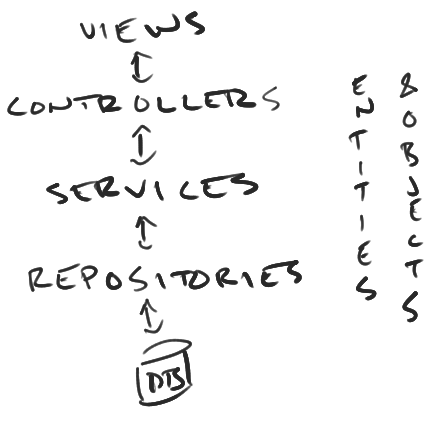 VIEWS
CONTROLLERS
SERVICES
REPOSITORIES
DB
ENTITIES
& OBJECTS